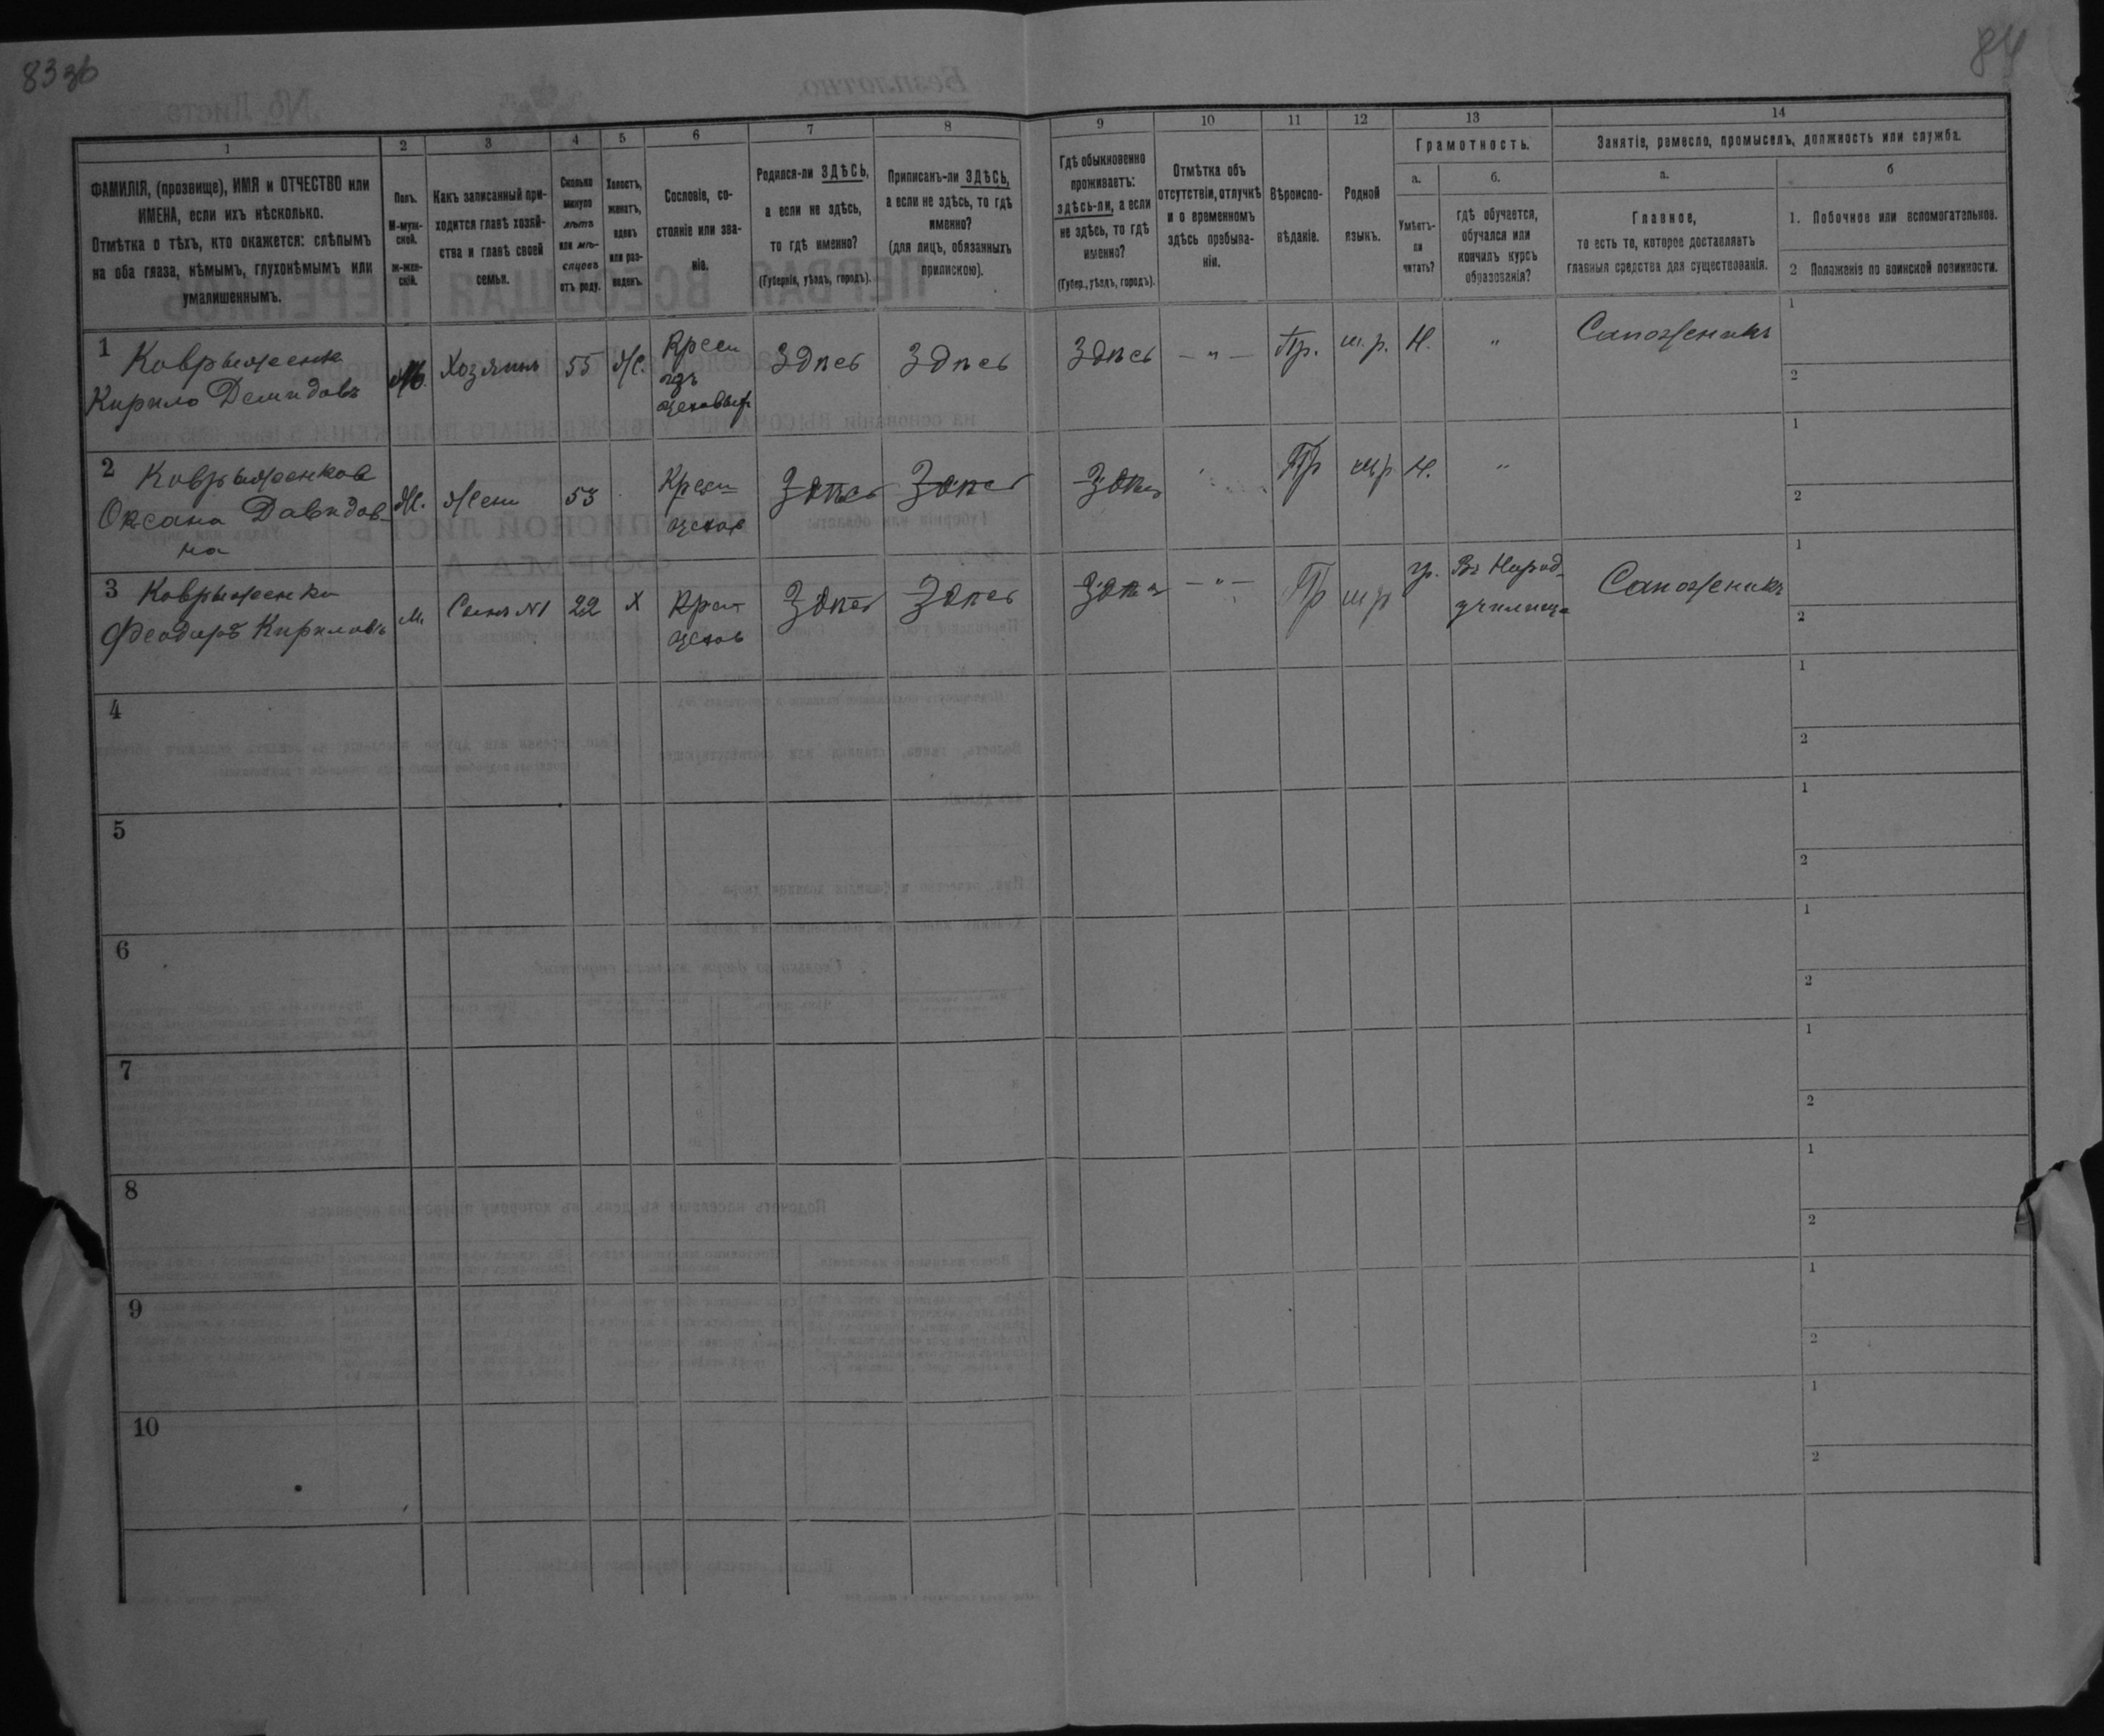 83 зв
84
1
2
3
4
5
6
7
8
9
10
11
12
13
14
ФАМИЛІЯ, (прозвище), ИМЯ и ОТЧЕСТВО или
ИМЕНА, если ихъ нѣсколько.
Отмѣтка о тѣхъ, кто окажется: слѣпымъ
на оба глаза, нѣмымъ, глухонѣмымъ или
умалишеннымъ.
Полъ.
М-муж-
ской.
ж-жен-
скій.
Какъ записанный при-
ходится главѣ хозяй-
ства и главѣ своей
семьи.
Сколько
минуло
лѣтъ
или мѣ-
сяцевъ
отъ роду.
Холостъ,
женатъ,
вдовъ
или раз-
веденъ.
Сословіе, со-
стояніе или зва-
ніе.
Родился-ли ЗДѢСЬ,
а если не здѣсь,
то гдѣ именно?
(Губернія, уѣздъ, городъ).
Приписанъ-ли ЗДѢСЬ,
а если не здѣсь, то гдѣ
именно?
(для лицъ, обязанныхъ
припискою).
Гдѣ обыкновенно
проживаетъ:
здѣсь-ли, а если
не здѣсь, то гдѣ
именно?
(Губер., уѣздъ, городъ).
Отмѣтка объ
отсутствіи, отлучкѣ
и о временномъ
здѣсь пребыва-
ніи.
Вѣроиспо-
вѣданіе.
Родной
языкъ.
Грамотность.
а.
Умѣетъ-
ли
читать?
б.
гдѣ обучается,
обучался или
кончилъ курсъ
образованія?
Занятіе, ремесло, промыселъ, должность или служба.
а.
Главное,
то есть то, которое доставляетъ
главныя средства для существованія.
б
1. Побочное или вспомогательное.
2 Положеніе по воинской повинности.
1 Коврыженко
Кирило Демидовъ
М.
Хозяинъ
55
Ж.
Здѣсь
Здѣсь
Здѣсь
— " —
Пр.
м. р.
Н.
"
Сапожникъ
1
2
2 Коврыженкова
Оксана Давидов-
на
Ж.
Жена
53
Здѣсь
Здѣсь
Здѣсь
Пр
м р
Н.
"
1
2
3 Коврыженко
Феодоръ Кириловъ
М.
Сынъ №1
22
Х
Здѣсь
Здѣсь
Здѣсь
— " —
Пр
м р
гр.
Въ Народ.
училищѣ
Сапожникъ
1
2
4
1
2
5
1
2
6
1
2
7
1
2
8
1
2
9
1
2
10
1
2